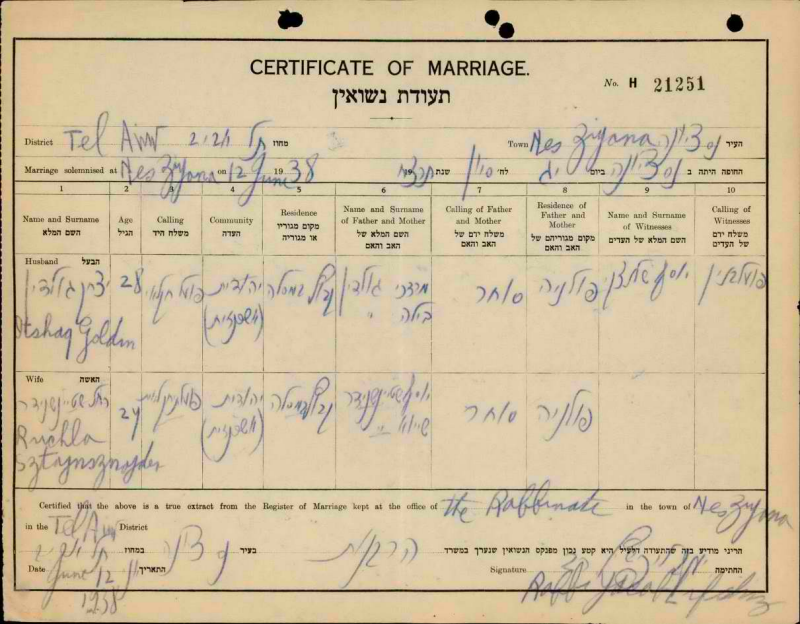 CERTIFICATE OF MARRIAGE.
No. H 21251
תעודת נשואין
District Tel Aviv תל אביב מחוז Town Nes Ziyona נס ציונה העיר
Marriage solemnised at Nes Ziyona on 12 June 1938 שנת תרצח לח׳ סיון יג ביום נס ציונה החופה היתה ב
1 2 3 4 5 6 7 8 9 10
Name and Surname
השם המלא
Age
הגיל
Calling
משלח היד
Community
העדה
Residence
מקום מגוריו
או מגוריה
Name and Surname
of Father and Mother
השם המלא של
האב והאם
Calling of Father
and Mother
משלח ידם של
האב והאם
Residence of
Father and
Mother
מקום מגוריהם של
האב והאם
Name and Surname
of Witnesses
השם המלא של העדים
Calling of
Witnesses
משלח ידם
של העדים
Husband הבעל
יצחק גולדין
Itshaq Goldin
28
פועל חקלאי
יהודית
(אשכנזית)
מרדכי גולדין
בילה "
סוחר
פולניה
Wife האשה
רחל שטיינשניידר
Ruchla
Sztajnsznajder
24
יהודית
(אשכנזית)
יוסף שטיינשניידר
סוחר
פולניה
Certified that the above is a true extract from the Register of Marriage kept at the office of the Rabbinate in the town of Nes Ziyona
in the Tel Aviv District
הריני מודיע בזה שהתעודה דלעיל היא קטע נכון מפנקס הנשואין שנערך במשרד הרבנות בעיר נס ציונה במחוז תל אביב
Date June 12 1938 התאריך
Signature החתימה
Rabbi Jacob